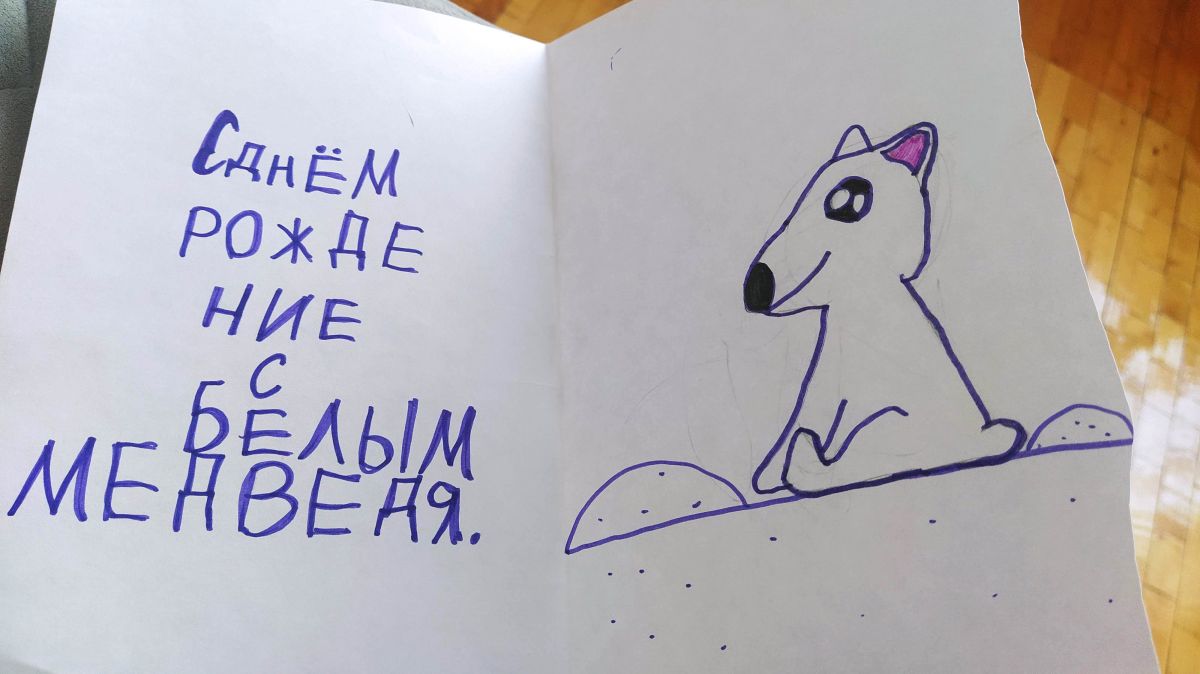 СДНЁМ
РОЖДЕ
НИЕ
С
БЕЛЫМ
МЕДВЕДЯ.